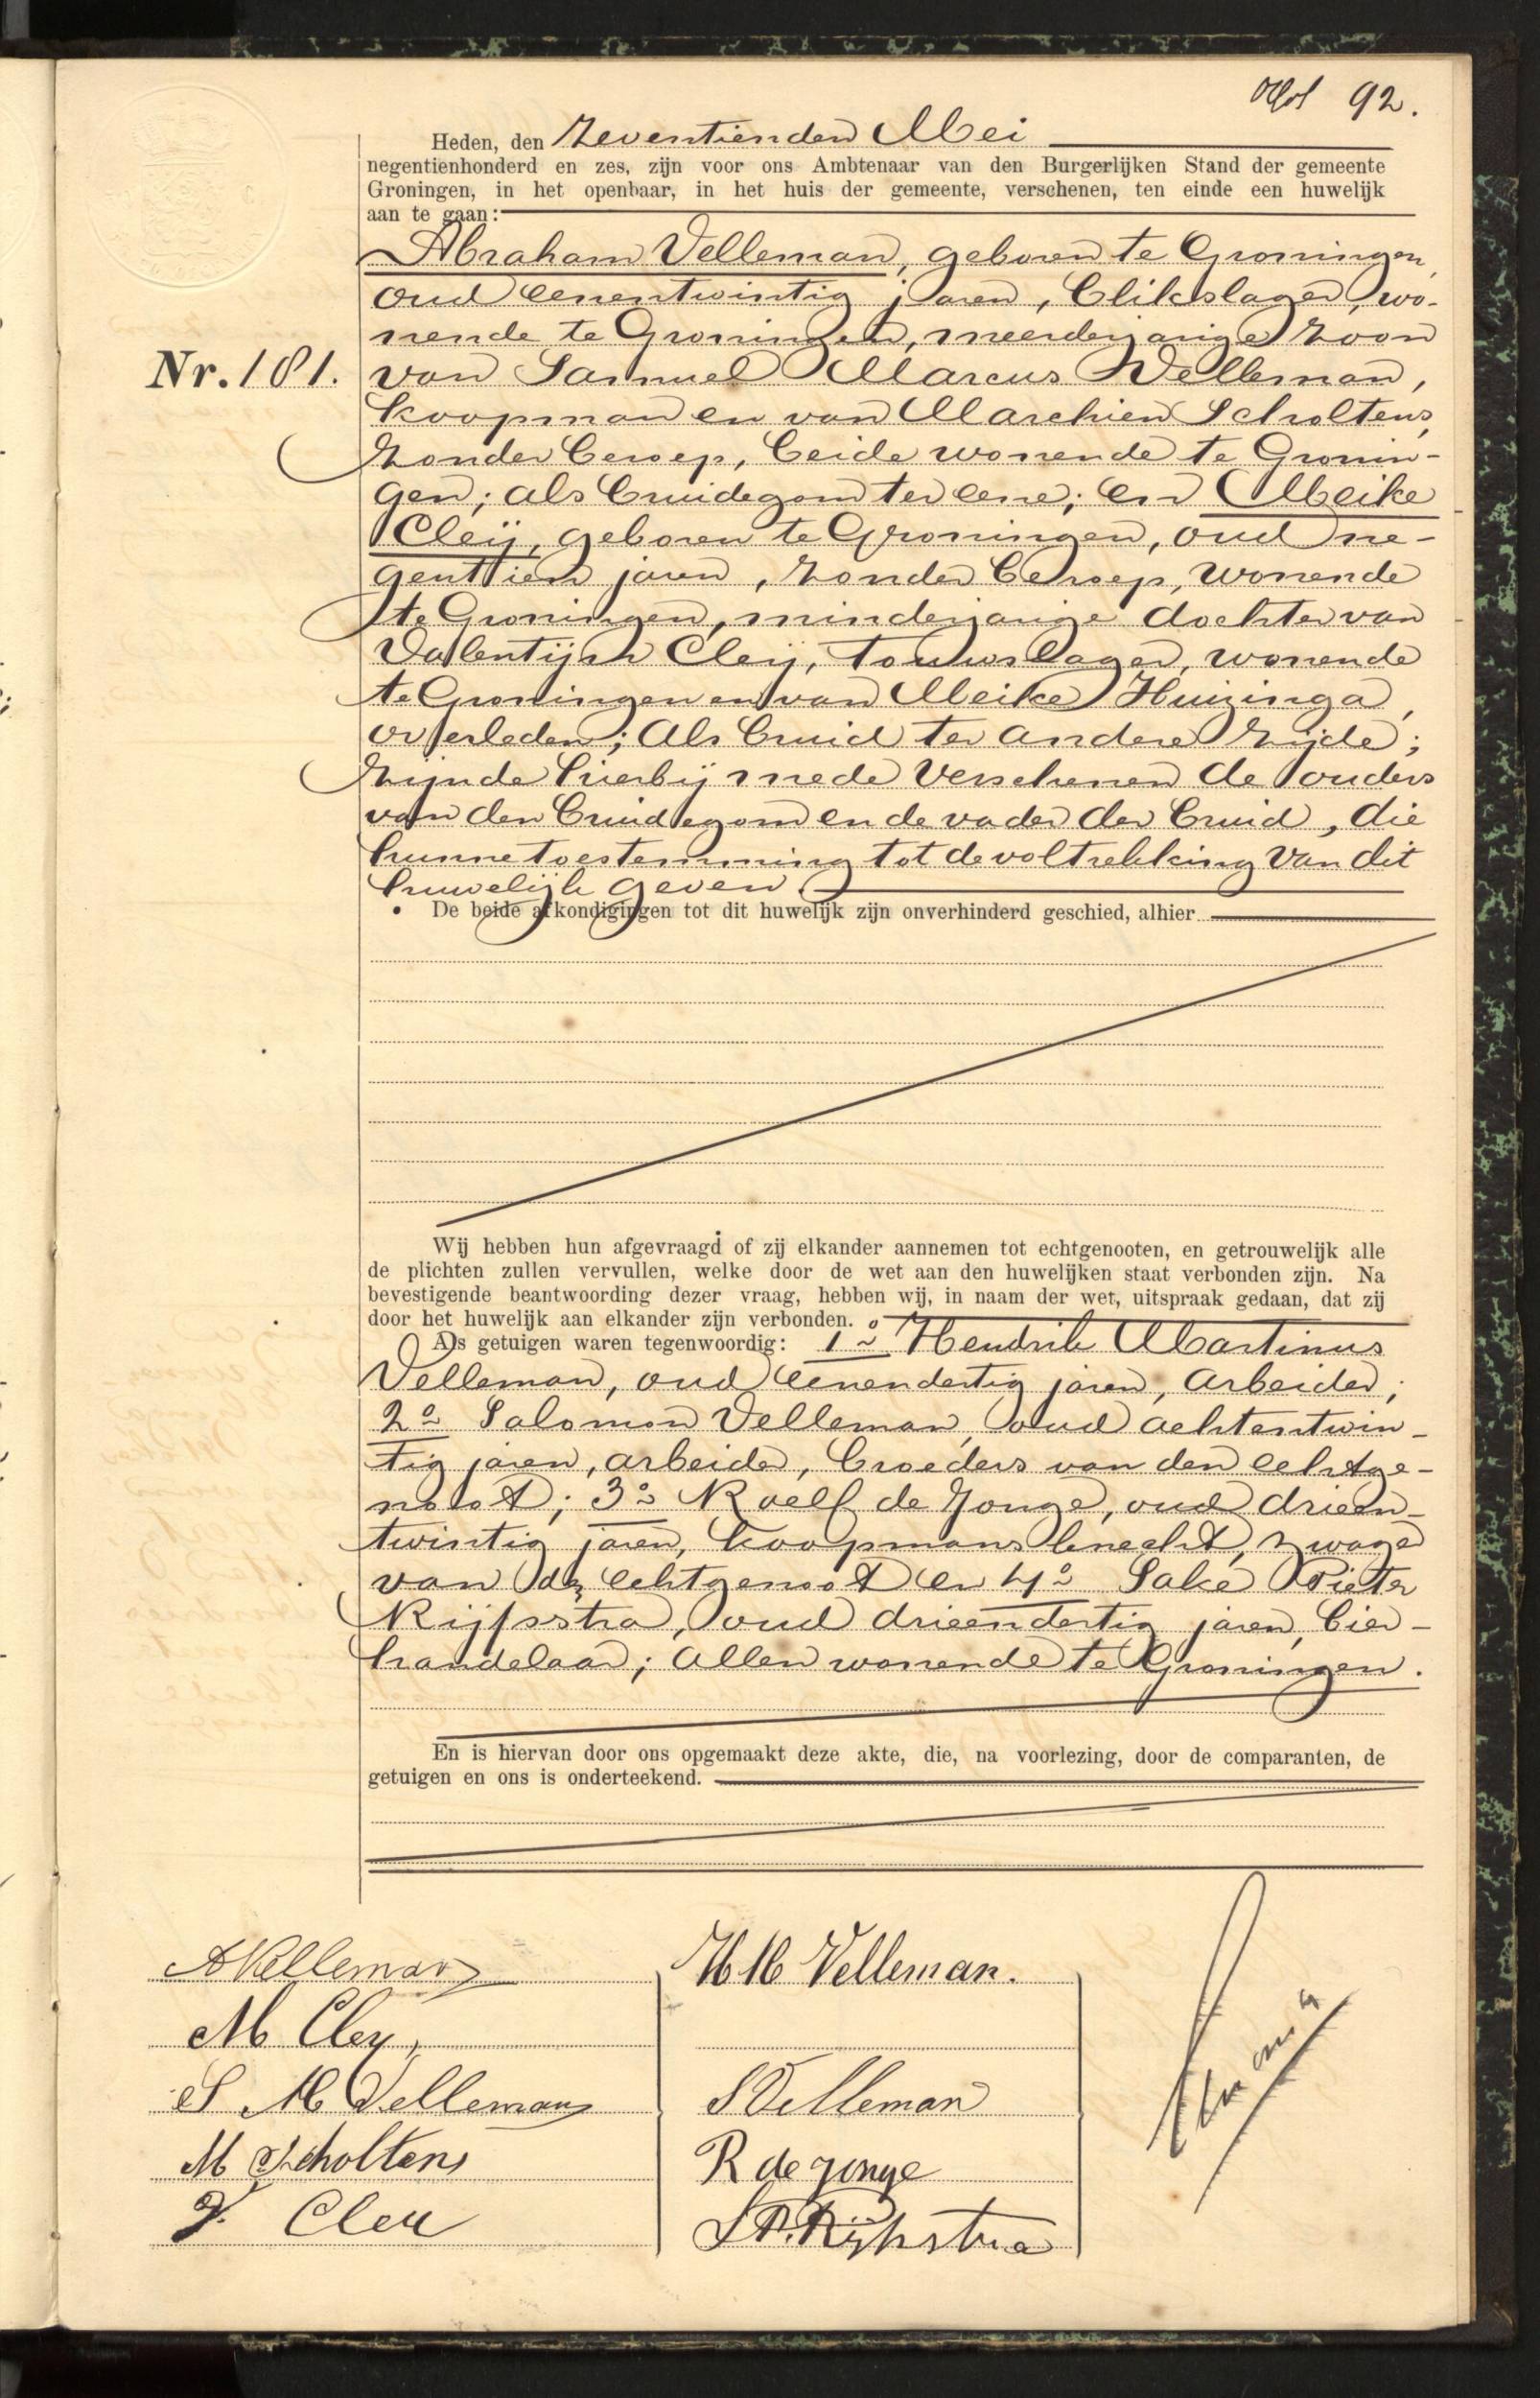 92.
Heden, den Zeventienden Mei
negentienhonderd en zes, zijn voor ons Ambtenaar van den Burgerlijken Stand der gemeente
Groningen, in het openbaar, in het huis der gemeente, verschenen, ten einde een huwelijk
aan te gaan:
Abraham Velleman, geboren te Groningen,
oud eenentwintig jaren, blikslager, wo-
nende te Groningen, meerderjarige zoon
Nr. 181.
van Samuel Marcus Velleman,
koopman en van Marchien Scholtens,
zonder beroep, beide wonende te Gronin-
gen; als bruidegom ter eene; en Meike
Cleij, geboren te Groningen, oud ne-
gentien jaren, zonder beroep, wonende
te Groningen, minderjarige dochter van
Valentijn Cleij, touwslager, wonende
te Groningen en van Meike Huizinga,
overleden; als bruid ter andere zijde;
zijnde hierbij mede verschenen de ouders
van den bruidegom en de vader der bruid, die
hunne toestemming tot de voltrekking van dit
huwelijk geven.
De beide afkondigingen tot dit huwelijk zijn onverhinderd geschied, alhier
Wij hebben hun afgevraagd of zij elkander aannemen tot echtgenooten, en getrouwelijk alle
de plichten zullen vervullen, welke door de wet aan den huwelijken staat verbonden zijn. Na
bevestigende beantwoording dezer vraag, hebben wij, in naam der wet, uitspraak gedaan, dat zij
door het huwelijk aan elkander zijn verbonden.
Als getuigen waren tegenwoordig: 1o Hendrik Martinus
Velleman, oud eenendertig jaren, arbeider;
2o Salomon Velleman, oud achtentwin-
tig jaren, arbeider, broeders van den echtge-
noot; 3o Roelf de Jonge, oud drieën-
twintig jaren, koopmansknecht, zwager
van den echtgenoot en 4o Sake Pieter
Rijpstra, oud drieëndertig jaren, bier-
handelaar; allen wonende te Groningen.
En is hiervan door ons opgemaakt deze akte, die, na voorlezing, door de comparanten, de
getuigen en ons is onderteekend.
A Velleman
M Cley,
S M Velleman
M Scholtens
V. Cley
HM Velleman.
S Velleman
R de Jonge
S P. Rijpstra